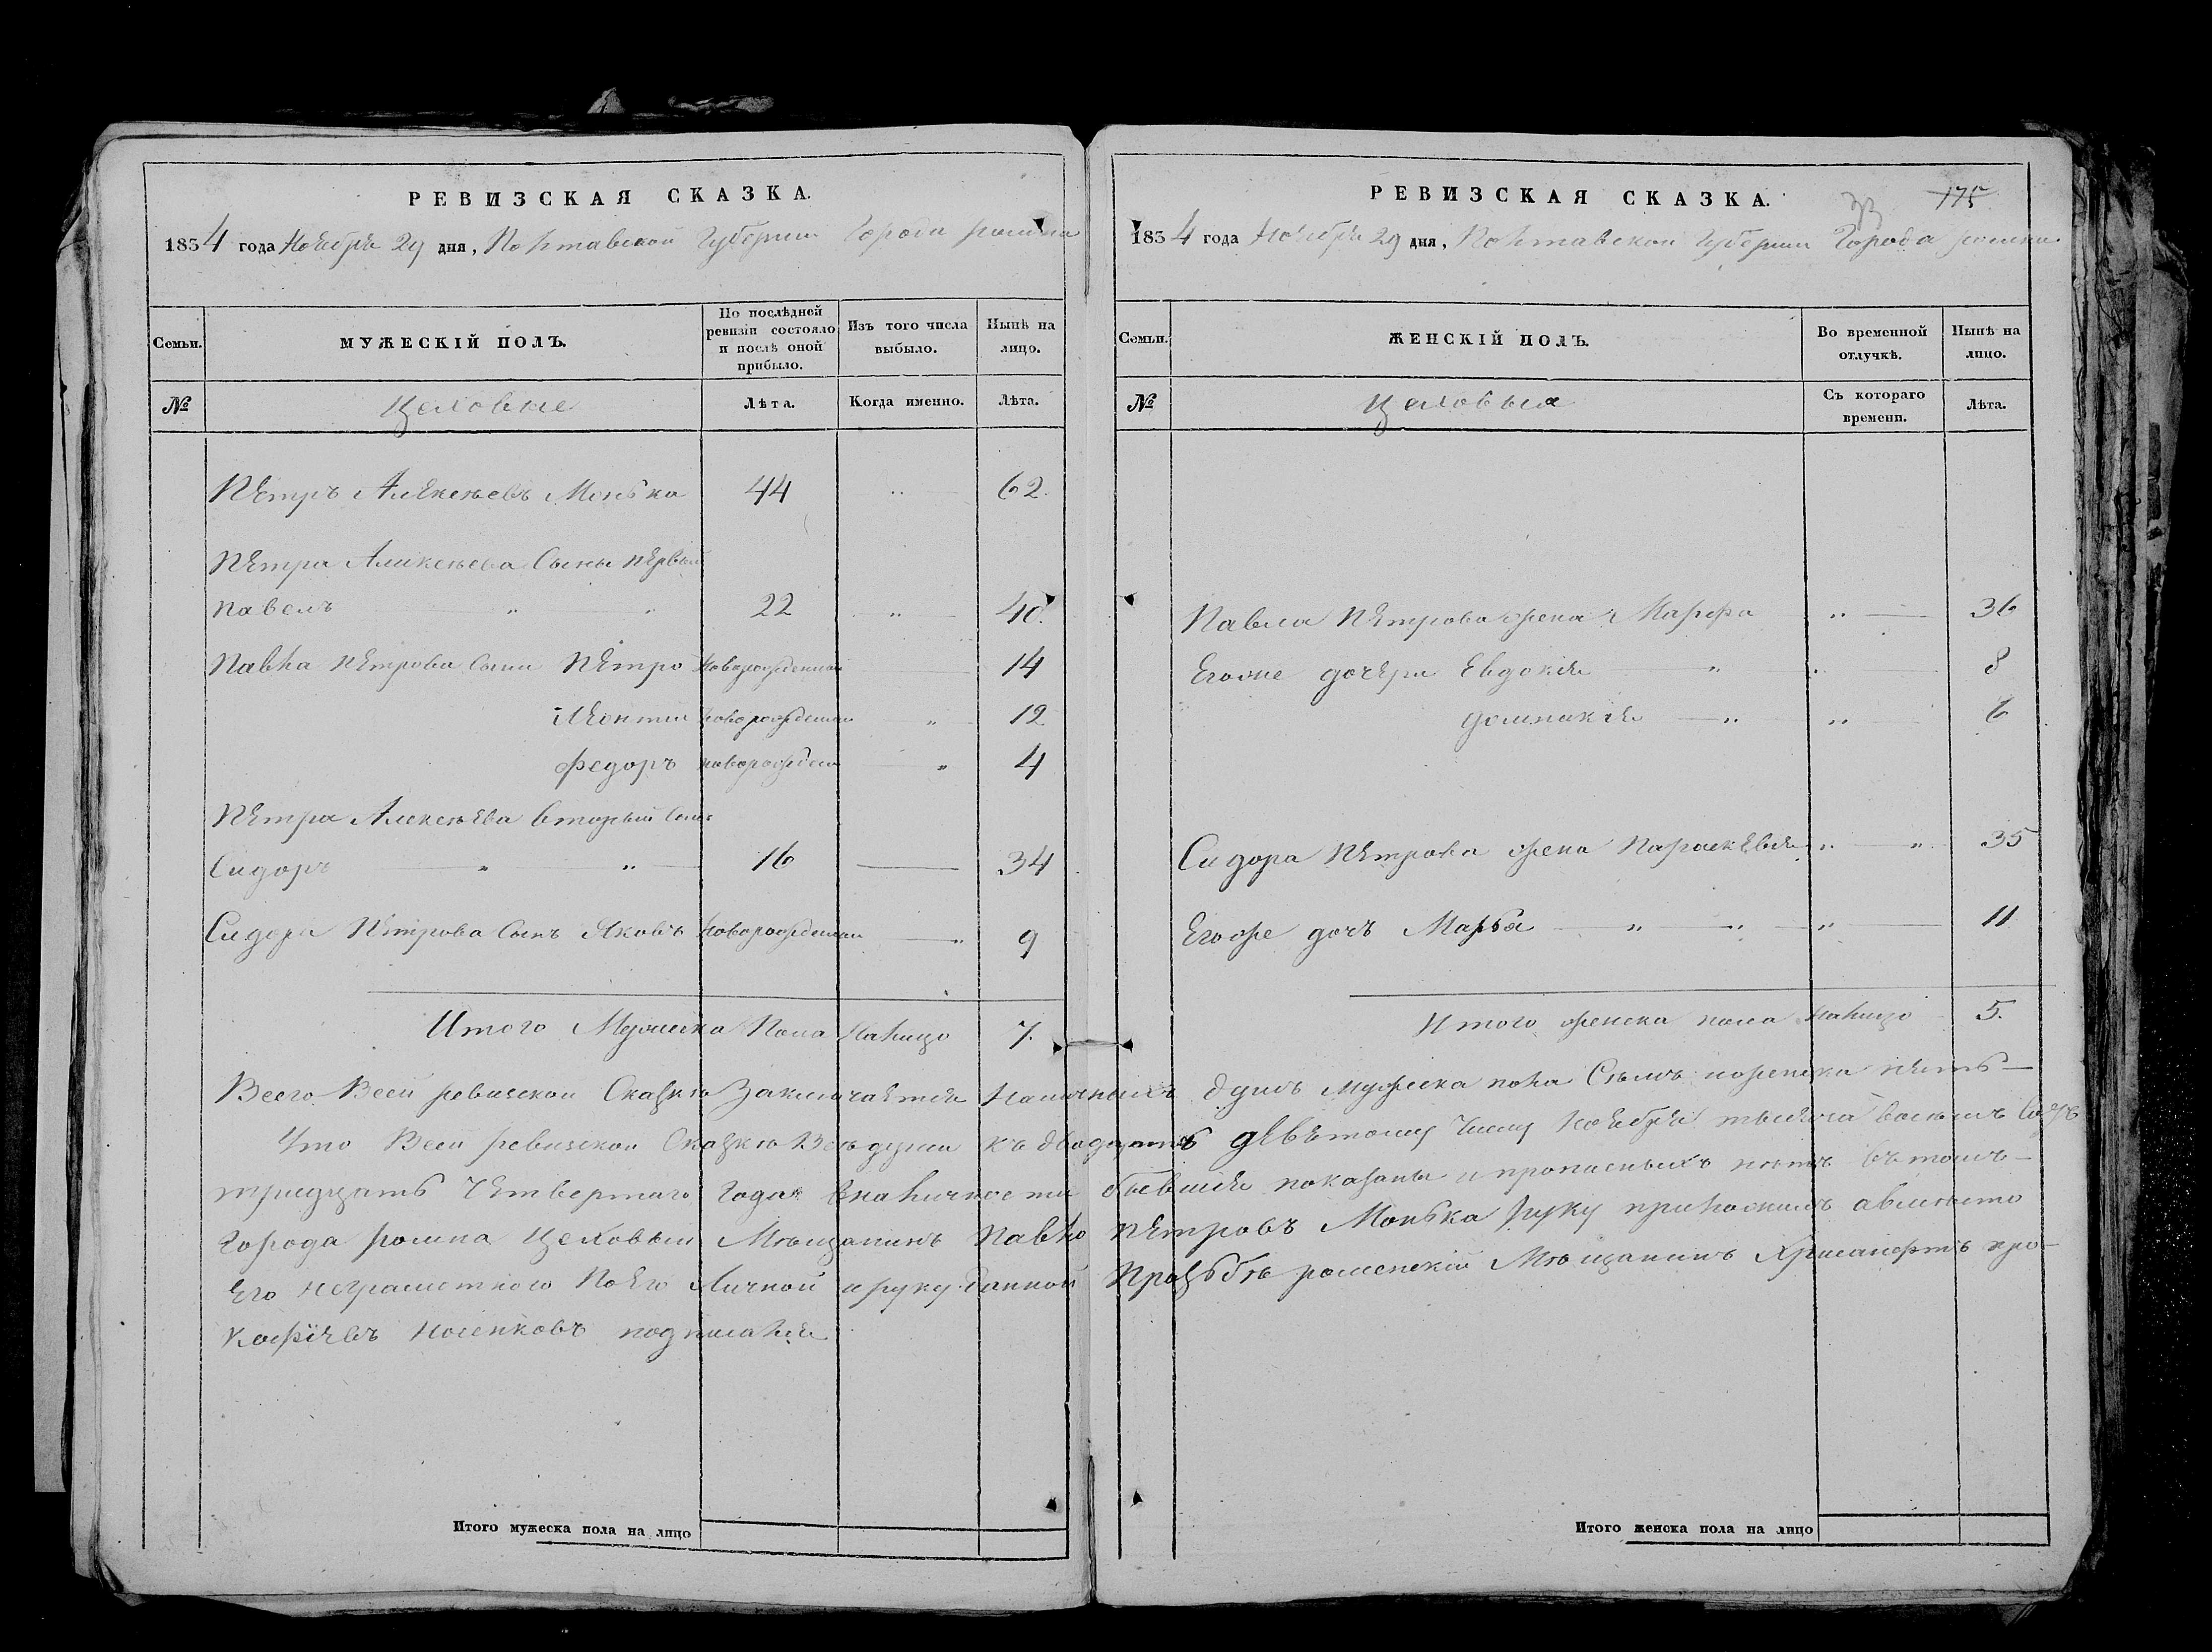 РЕВИЗСКАЯ СКАЗКА.
1834 года Ноября 29 дня, Полтавской Губернии Города ромна
Семьи.
МУЖЕСКІЙ ПОЛЪ.
По послѣдней ревизіи состояло и послѣ оной прибыло.
Изъ того числа выбыло.
Нынѣ на лицо.
№
Цеховые
Лѣта.
Когда именно.
Лѣта.
Петръ Алексѣевъ Монька 44 " 62.
Петра Алексѣева Сыны первый
Павелъ " " 22 " 40.
Павла Петрова Сыны Петро новорожденный 14
Леонтій новорожденный " 12
Федоръ новорожден " 4
Петра Алексѣева вторый Сынъ
Сидоръ " " 16 34
Сидора Петрова Сынъ Яковъ новорожденный " 9
Итого Мужеска Пола Налицо 7.
РЕВИЗСКАЯ СКАЗКА.
175
1834 года Ноября 29 дня, Полтавской Губернии Города ромна
Семьи.
ЖЕНСКІЙ ПОЛЪ.
Во временной отлучкѣ.
Нынѣ на лицо.
№
Цеховыя
Съ котораго времени.
Лѣта.
Павла Петрова жена Марфа " 36
Егоже дочери Евдокія " " 8
Домникія " " 6
Сидора Петрова жена Параскевія " " 35
Егоже дочь Марья " " " 11
Итого женска пола налицо 5.
Всего Всей ревизской Сказкѣ Заключается Наличныхъ душъ мужеска пола Сѣмъ иженска пять
Что Всей ревизской Сказкѣ Всѣ души къ двадцать девѣтому Числу Ноября тысяча восемь сотъ
тридцать Четвертаго Года вналичности бывшія показаны и прописныхъ нѣтъ вътомъ
Города ромна Цеховый Мѣщанинъ Павло Петровъ Монька руку приложилъ авмѣсто
Его неграмотного По Его Личной ируку данной Прозьбѣ роменскій Мѣщанинъ Хрисанфтъ про-
кофіевъ Носенковъ подписался
Итого мужеска пола на лицо
Итого женска пола на лицо